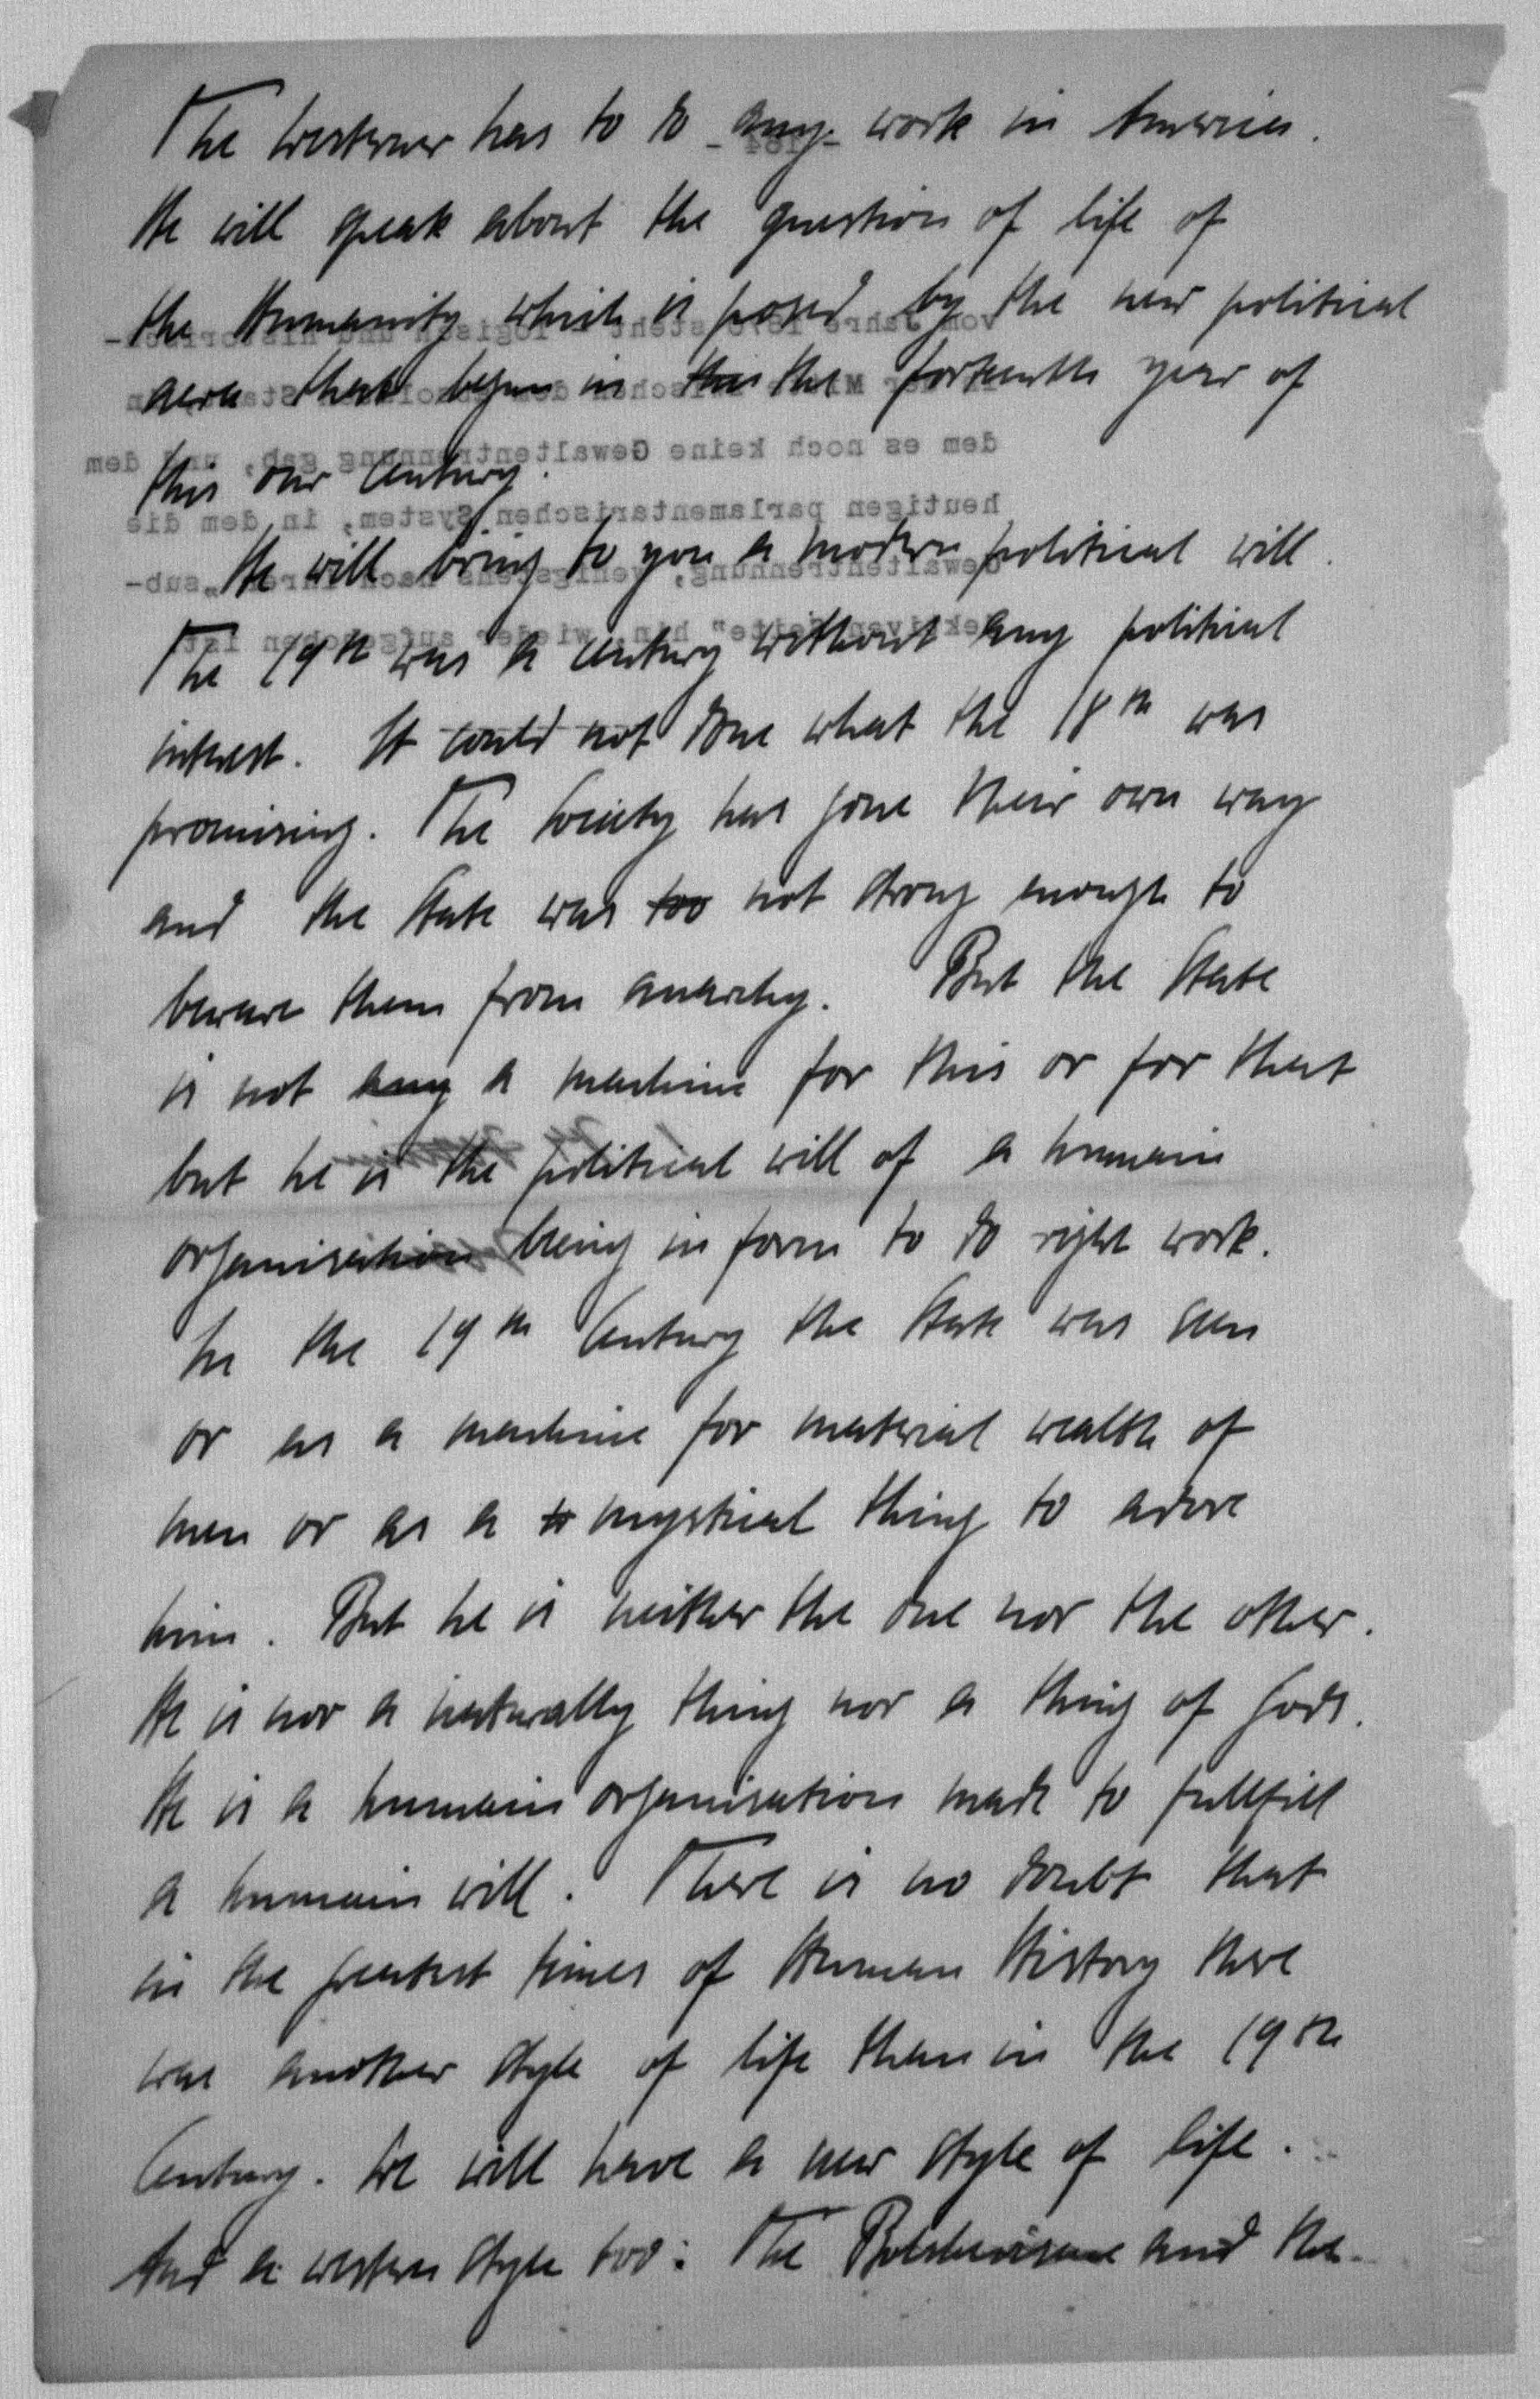 The Westerner has to do any work in America.
He will speak about the question of life of
the Humanity which is posed by the new political
aera that begun in this the forteenth year of
this our Century.
He will bring to you a modern political will.
The 19th was a century without any political
interest. It could not done what the 18th was
promising. The Society has gone their own way
and the State was too not strong enough to
beware them from anarchy. But the State
is not any a machine for this or for that
but he is the political will of a humain
organisation being in form to do right work.
In the 19th Century the State was seen
or as a machine for material wealth of
men or as a mystical thing to adore
him. But he is neither the one nor the other.
He is nor a naturally thing nor a thing of Gods.
He is a humain organisation made to fullfill
a humain will. There is no doubt that
in the greatest times of Human History there
was another style of life than in the 19th
Century. We will have a new style of life.
And a western style too: The Bolshevisme and the
- 164 -
vom Jahre 1870 steht logisch und historisch
dem es noch keine Gewaltentrennung gab, und dem
heutigen parlamentarischen System, in dem die
Gewaltentrennung, wenigstens nach ihrer „sub-
jektiven Seite" hin, wieder aufgehoben ist.